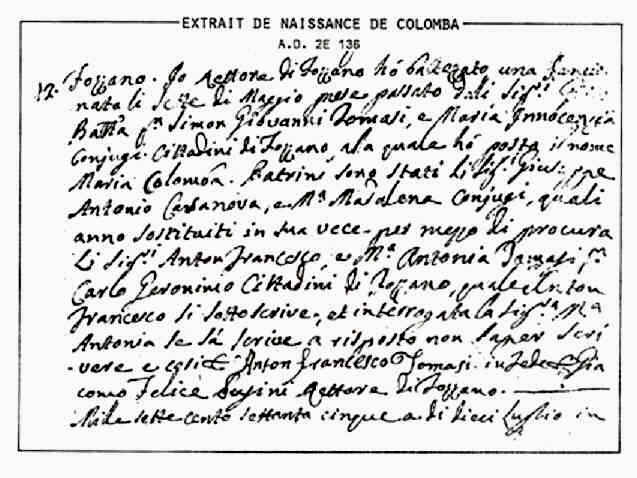 EXTRAIT DE NAISSANCE DE COLOMBA
A.D. 2E 136
12. Fozzano. Io Rettore di Fozzano hó battezzato una
nata li sette di Maggio mese passato dalli Sig.ri
Batta q.m Simon Giovanni Tomasi, e Maria Innocenza
Conjugi Cittadini di Fozzano ala quale hó posto il nome
Maria Colomba. Patrini sono stati li Sig.ri Giuseppe
Antonio Casanova, e M.a Madalena Conjugi, quali
anno sostituiti in sua vece per mezzo di procura
Li Sig.ri Anton Francesco, e M.a Antonia Tomasi, q.m
Carlo Geronimo Cittadini di Fozzano, quale Anton
Francesco si sottoscrive, et interrogata la Sig.ra M.a
Antonia se sá scrive a risposto non saper scri
vere e cosi Anton Francesco Tomasi in fede
como Felice Rettore di Fozzano.
Mille sette cento settanta cinque a di dieci Luglio in